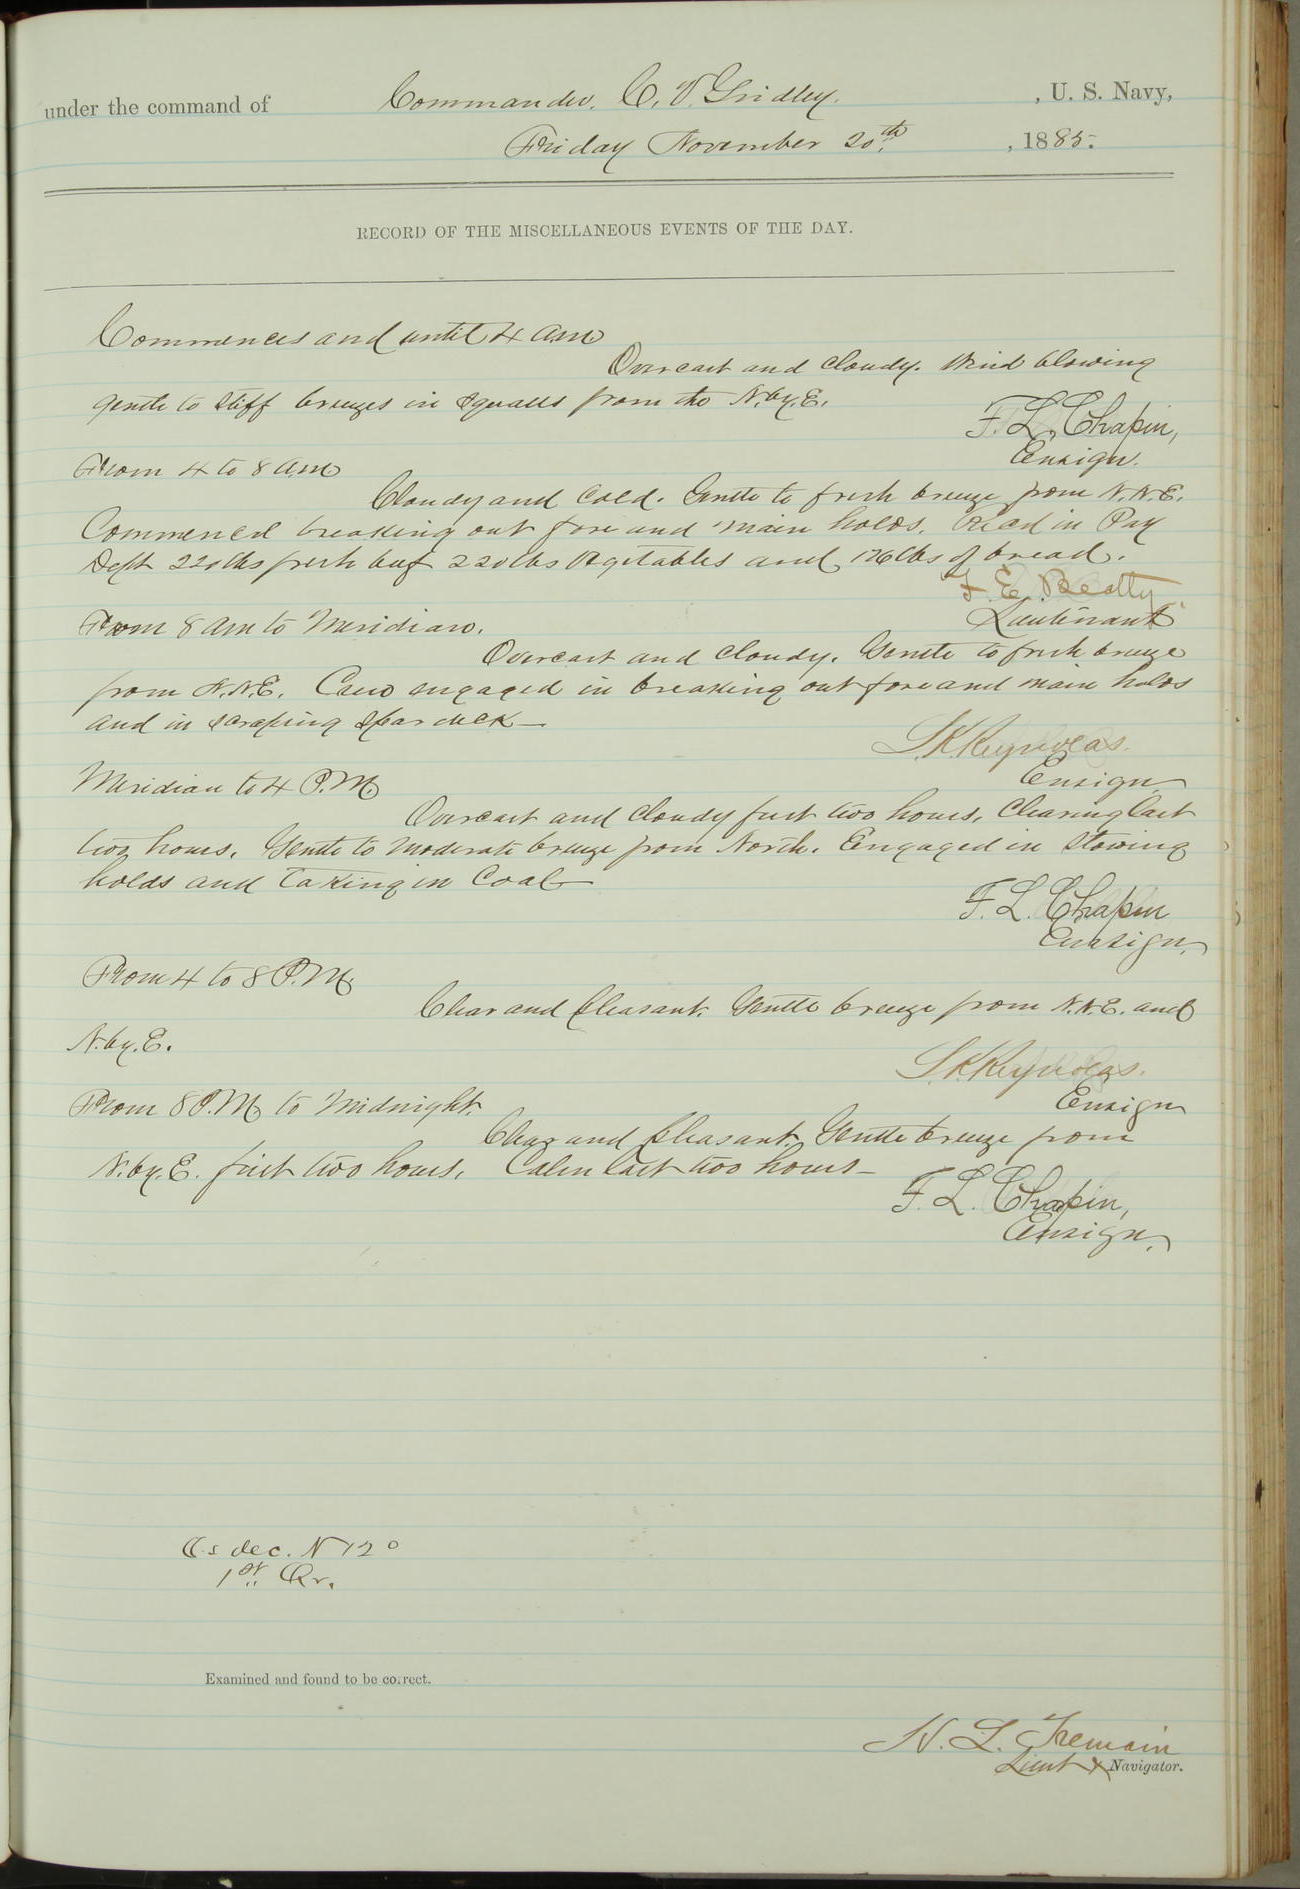 under the command of Commander. C. V. Gridley. , U. S. Navy,
Friday November 20th. , 1885.
RECORD OF THE MISCELLANEOUS EVENTS OF THE DAY.
Commences and until 4 am
Overcast and cloudy. Wind blowing
gentle to stiff breezes in squalls from the N.by.E.
F. L. Chapin,
Ensign.
From 4 to 8 am
Cloudy and Cold. Gentle to fresh breeze from N.N.E.
Commenced breaking out fore and main holds. Recd in Pay
Dept 220 lbs fresh beef 220 lbs vegetables and 176 lbs of bread.
F. E. Beatty
Lieutenant
From 8 am to Meridian.
Overcast and cloudy. Gentle to fresh breeze
from N.N.E. Crew engaged in breaking out fore and main holds
and in scraping spar deck—
L.K. Reynolds.
Ensign
Meridian to 4 P.M.
Overcast and cloudy first two hours, Clearing last
two hours. Gentle to moderate breeze from North. Engaged in stowing
holds and taking in Coal—
F. L. Chapin
Ensign.
From 4 to 8 P.M.
Clear and pleasant. Gentle breeze from N.N.E. and
N.by.E.
L.K. Reynolds.
Ensign
From 8 P.M. to Midnight
Clear and pleasant. Gentle breeze from
N.by.E. first two hours, Calm last two hours—
F. L. Chapin,
Ensign.
dec. N 12°
1st Qr.
Examined and found to be correct.
H. L. Tremain
Lieut & Navigator.